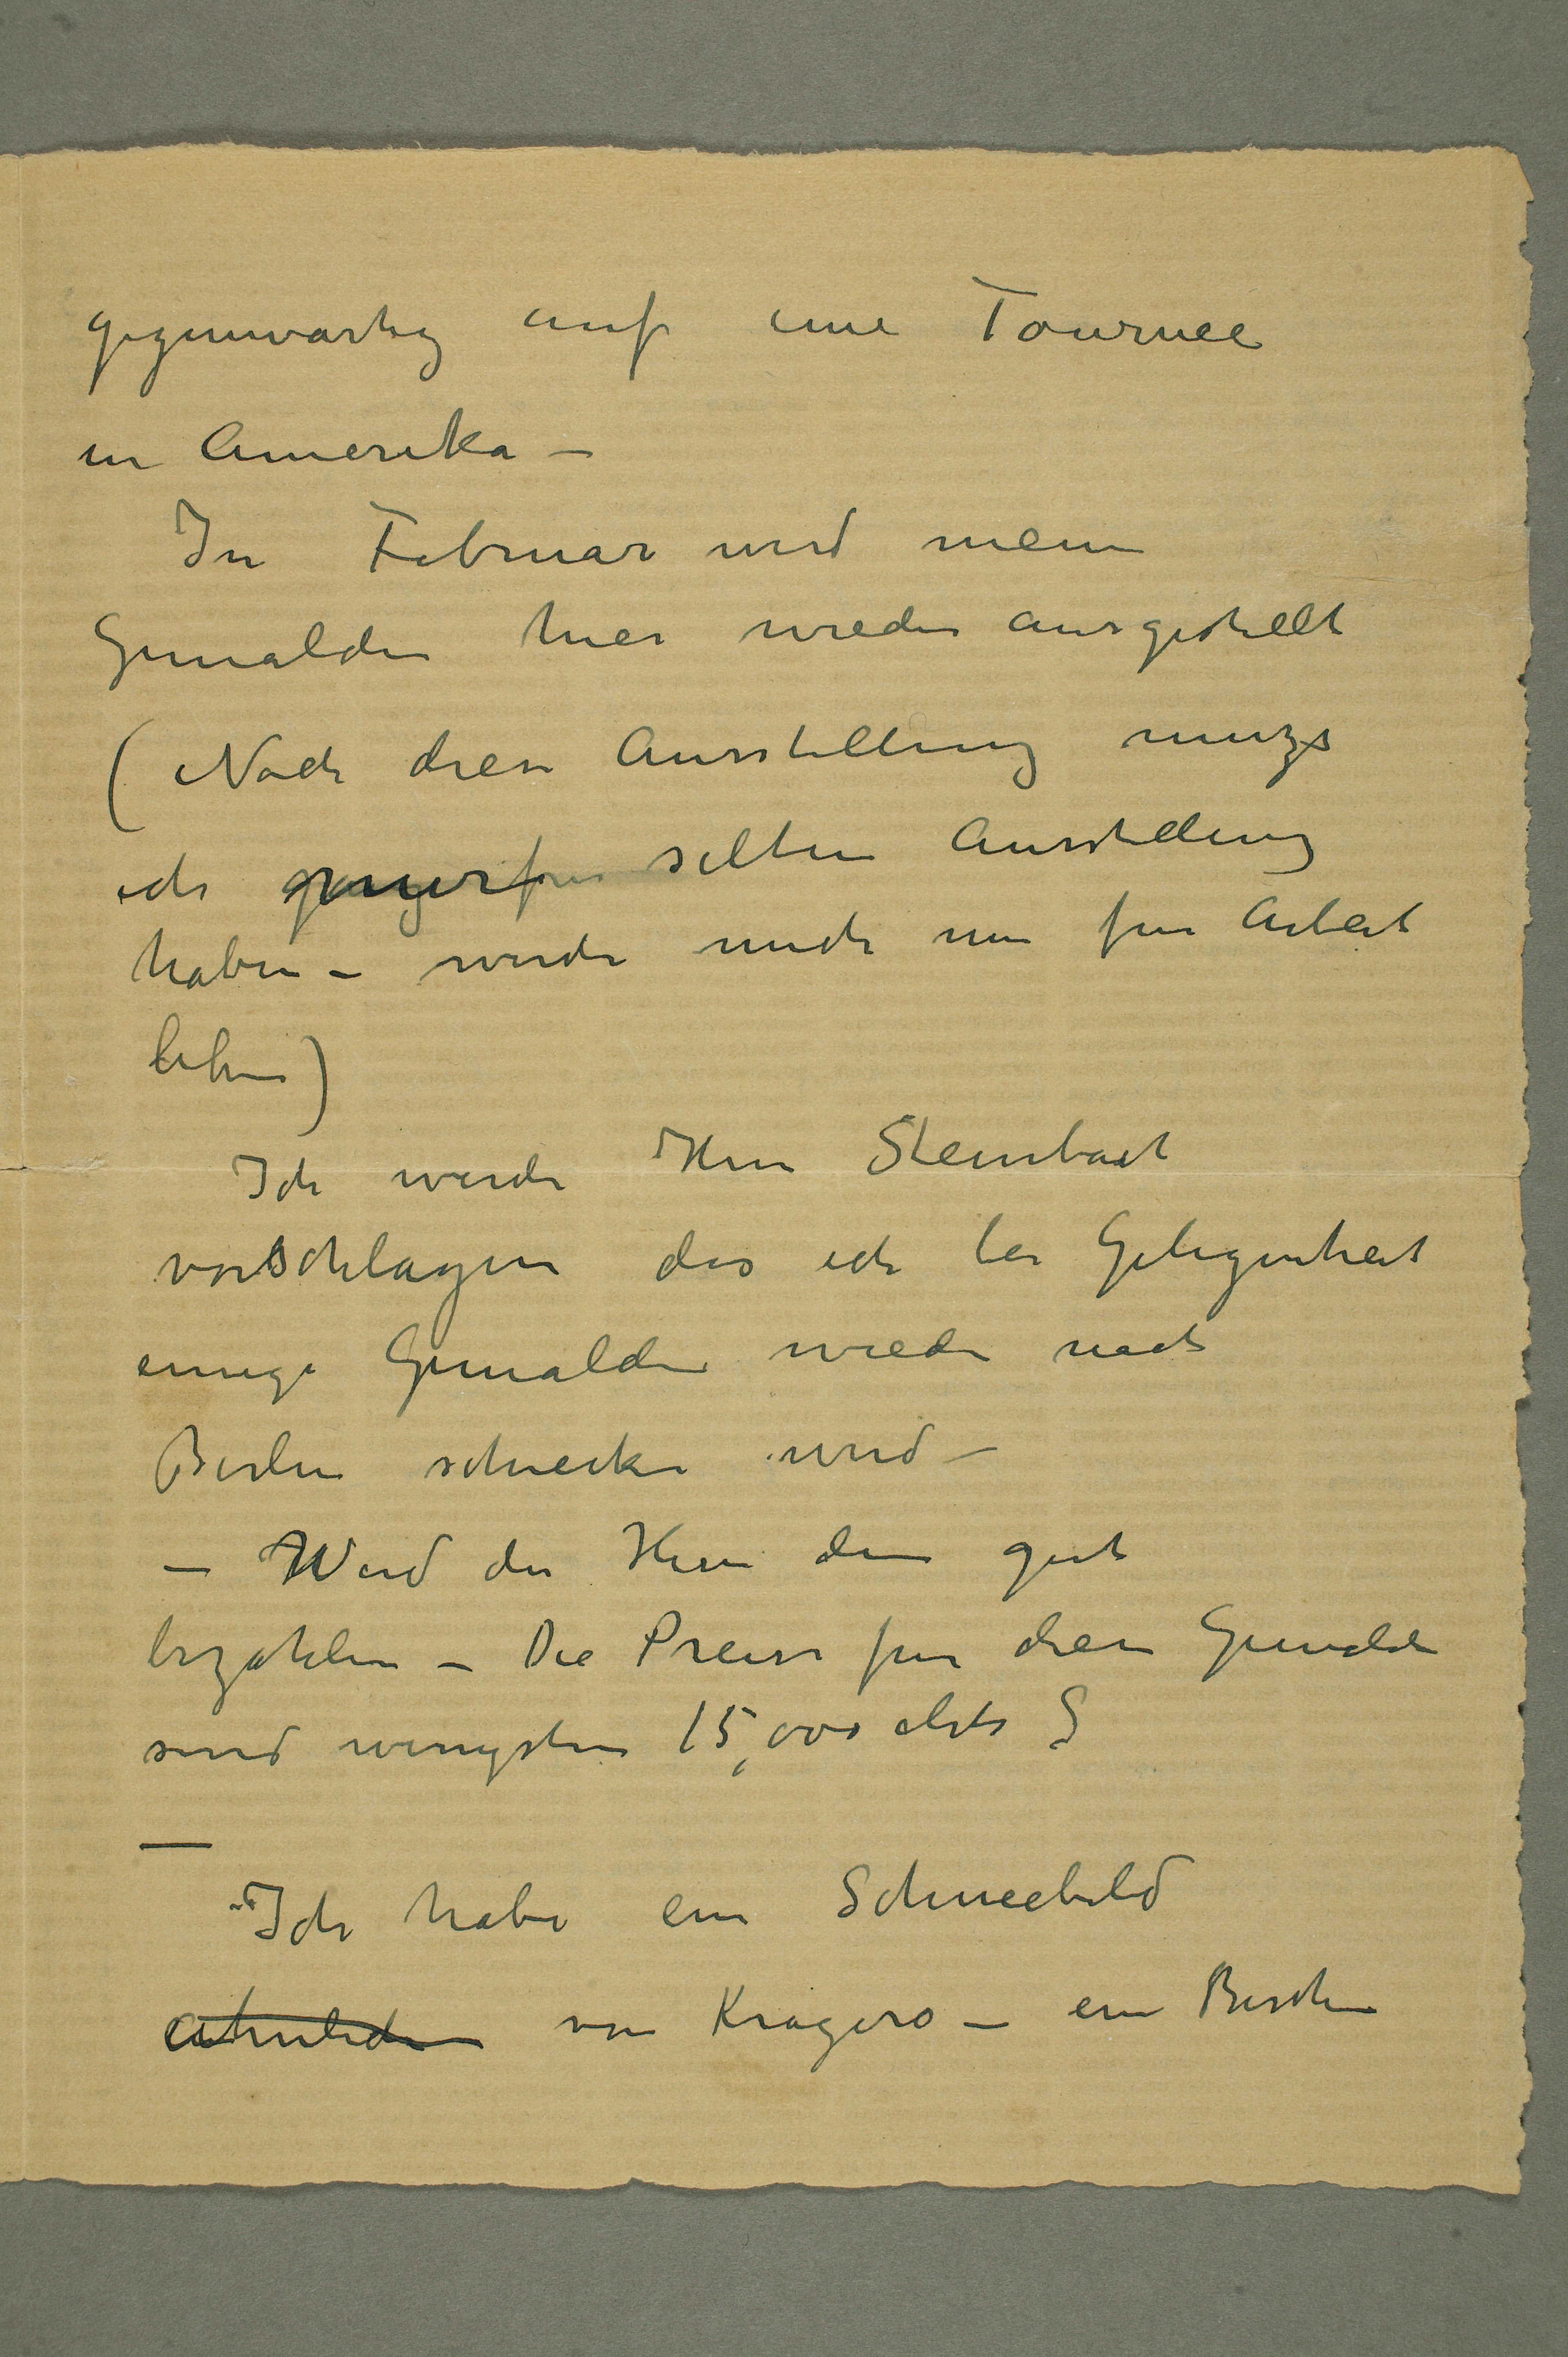 gegenwartig auf eine Tournee
in Amerika –
In Februar wird meine
Gemalden hier wieder ausgestellt
(Nach diese Ausstellung muzs
ich selten Ausstellung
haben – werde mich nur fur Arbeit
leben)
Ich werde Herr Steinbart
vorschlagen das ich bei Gelegenheit
einige Gemalden wieder nach
Berlin schicken wird –
– Wird der Herr den gut
bezahlen – Die Preise fur diese Gemalde
sind wenigsten 15,000 
—
Ich habe ein Schneebild
ahnlichen von Kragerø – ein Besten